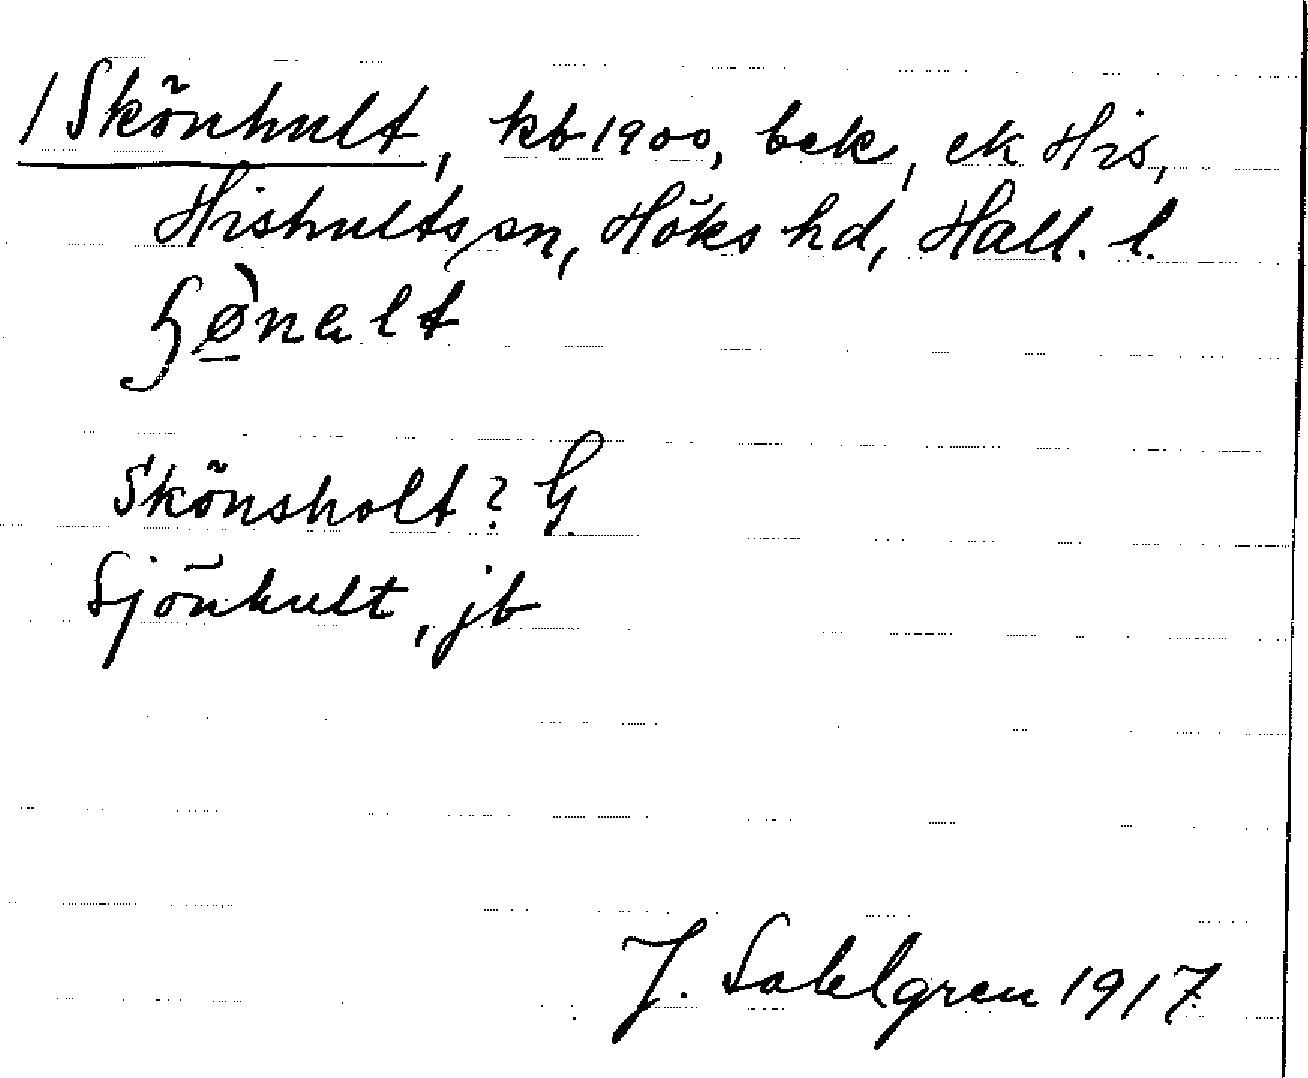 / Skönhult, kb 1900, bek, ek His,
Hishults sn, Höks hd, Hall. l.
Skönsholt? G
Sjönhult, jb
J. Sahlgren 1917